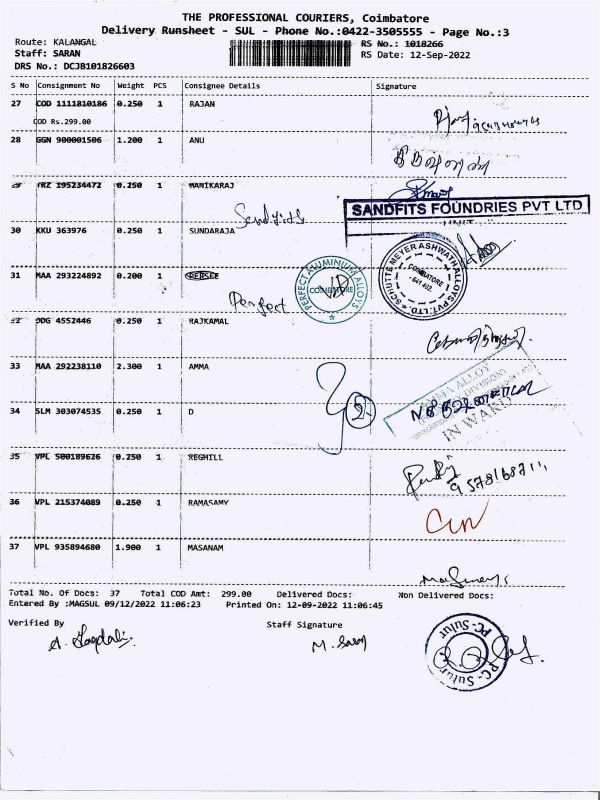 THE PROFESSIONAL COURIERS, Coimbatore
Delivery Runsheet - SUL - Phone No.:0422-3505555 - Page No.:3
Route: KALANGAL
RS No.: 1018266
Staff: SARAN
RS Date: 12-Sep-2022
DRS No.: DCJB101826603
S No Consignment No Weight PCS Consignee Details Signature
27 COD 1111810186 0.250 1 RAJAN
COD Rs.299.00
28 GGN 900001506 1.200 1 ANU
29 TRZ 195234472 0.250 1 MANIKARAJ
Sandfits
SANDFITS FOUNDRIES PVT LTD
30 KKU 363976 0.250 1 SUNDARAJA
SCHUTTE MEYER ASHWATH ALLOYS PVT. LTD.
COIMBATORE
641 402.
31 MAA 293224892 0.200 1
Perfect
PERFECT ALUMINIUM ALLOYS
COIMBATORE
32 DDG 4552446 0.250 1 RAJKAMAL
33 MAA 292238110 2.300 1 AMMA
ALLOY
IN WARD
34 SLM 303074535 0.250 1 D
35 VPL 500189626 0.250 1 REGHILL
36 VPL 215374089 0.250 1 RAMASAMY
37 VPL 935894680 1.900 1 MASANAM
Total No. Of Docs: 37 Total COD Amt: 299.00 Delivered Docs: Non Delivered Docs:
Entered By :MAGSUL 09/12/2022 11:06:23 Printed On: 12-09-2022 11:06:45
Verified By Staff Signature
M. Saran
PC-Sulur
PC-Sulur